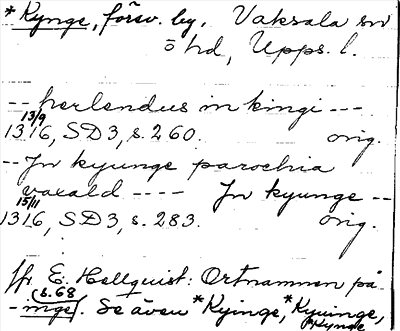 *Kynge, försv. by, Vaksala sn
ö hd, Upps. l.
-- herlendus in kingi ---
13/9
1316, SD 3, s. 260. orig.
-- Jn kyunge parochia
vaxald ---- Jn kyunge --
15/11
1316, SD 3, s. 283. orig.
jfr E. Hellquist: Ortnamnen på
-inge s. 68. Se även *Kyinge, *Kyuinge,
*Kynge